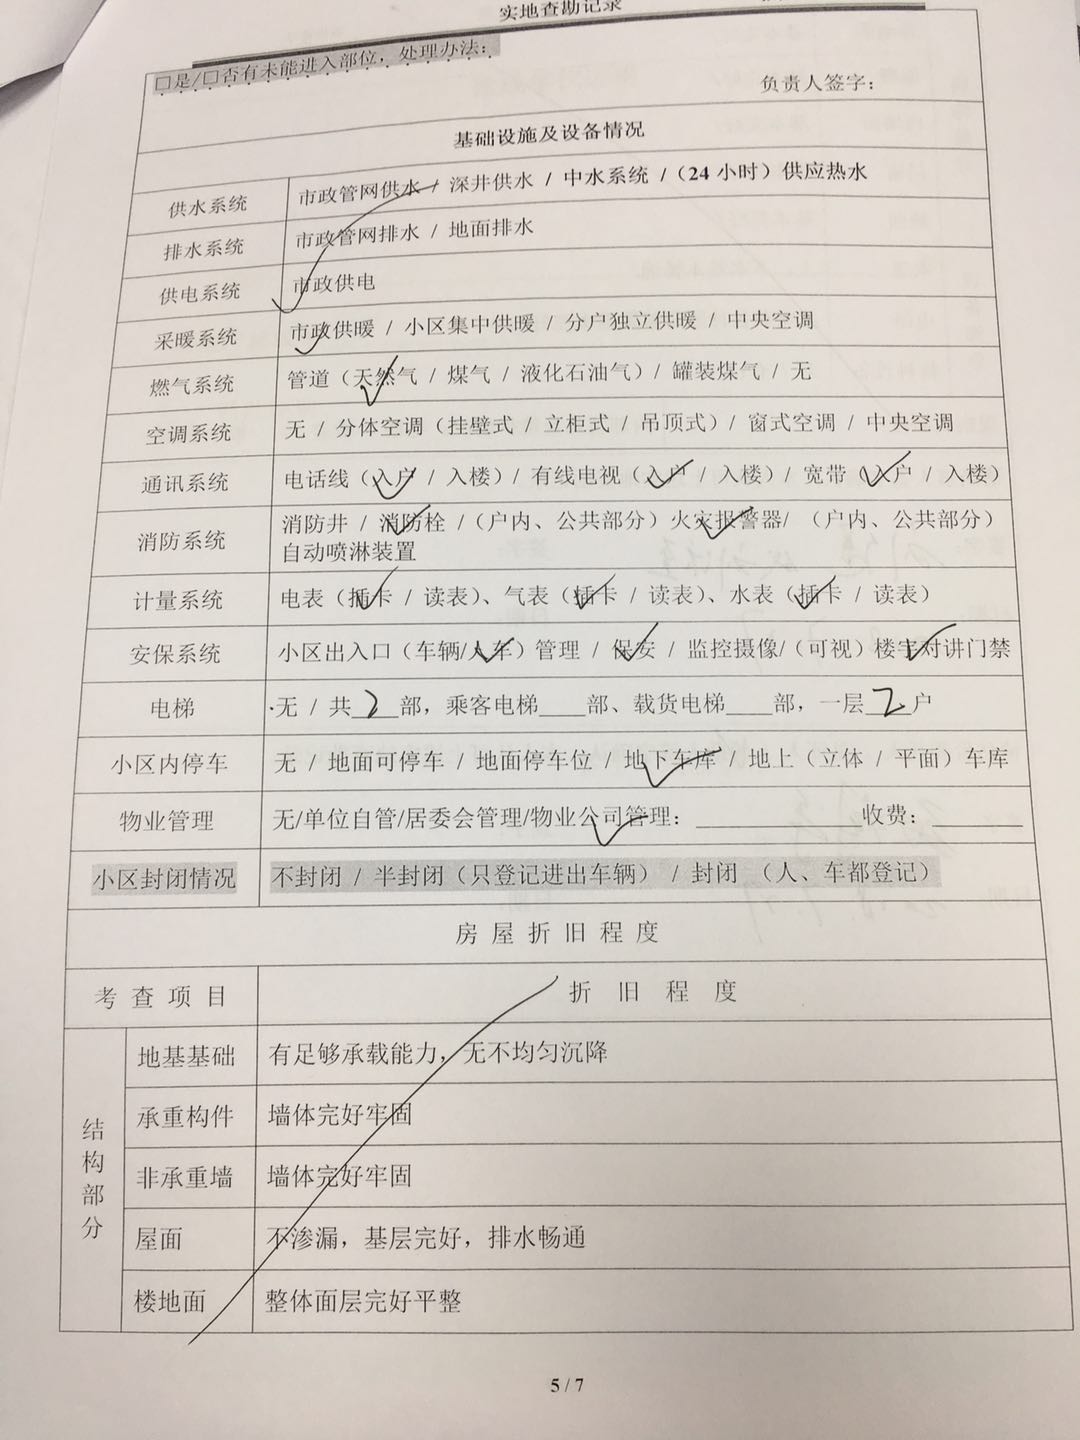 实地查勘记录
□是/□否有未能进入部位，处理办法：
负责人签字：
基础设施及设备情况
供水系统 市政管网供水 / 深井供水 / 中水系统 /（24 小时）供应热水
排水系统 市政管网排水 / 地面排水
供电系统 市政供电
采暖系统 市政供暖 / 小区集中供暖 / 分户独立供暖 / 中央空调
燃气系统 管道（天然气 / 煤气 / 液化石油气）/ 罐装煤气 / 无
空调系统 无 / 分体空调（挂壁式 / 立柜式 / 吊顶式）/ 窗式空调 / 中央空调
通讯系统 电话线（入户 / 入楼）/ 有线电视（入户 / 入楼）/ 宽带（入户 / 入楼）
消防系统 消防井 / 消防栓 /（户内、公共部分）火灾报警器/ （户内、公共部分）
自动喷淋装置
计量系统 电表（插卡 / 读表）、气表（插卡 / 读表）、水表（插卡 / 读表）
安保系统 小区出入口（车辆/人车）管理 / 保安 / 监控摄像/（可视）楼宇对讲门禁
电梯 无 / 共 2 部，乘客电梯____部、载货电梯____部，一层 2 户
小区内停车 无 / 地面可停车 / 地面停车位 / 地下车库 / 地上（立体 / 平面）车库
物业管理 无/单位自管/居委会管理/物业公司管理：______________收费：________
小区封闭情况 不封闭 / 半封闭（只登记进出车辆） / 封闭 （人、车都登记）
房屋折旧程度
考查项目 折旧程度
结构部分
地基基础 有足够承载能力，无不均匀沉降
承重构件 墙体完好牢固
非承重墙 墙体完好牢固
屋面 不渗漏，基层完好，排水畅通
楼地面 整体面层完好平整
5 / 7